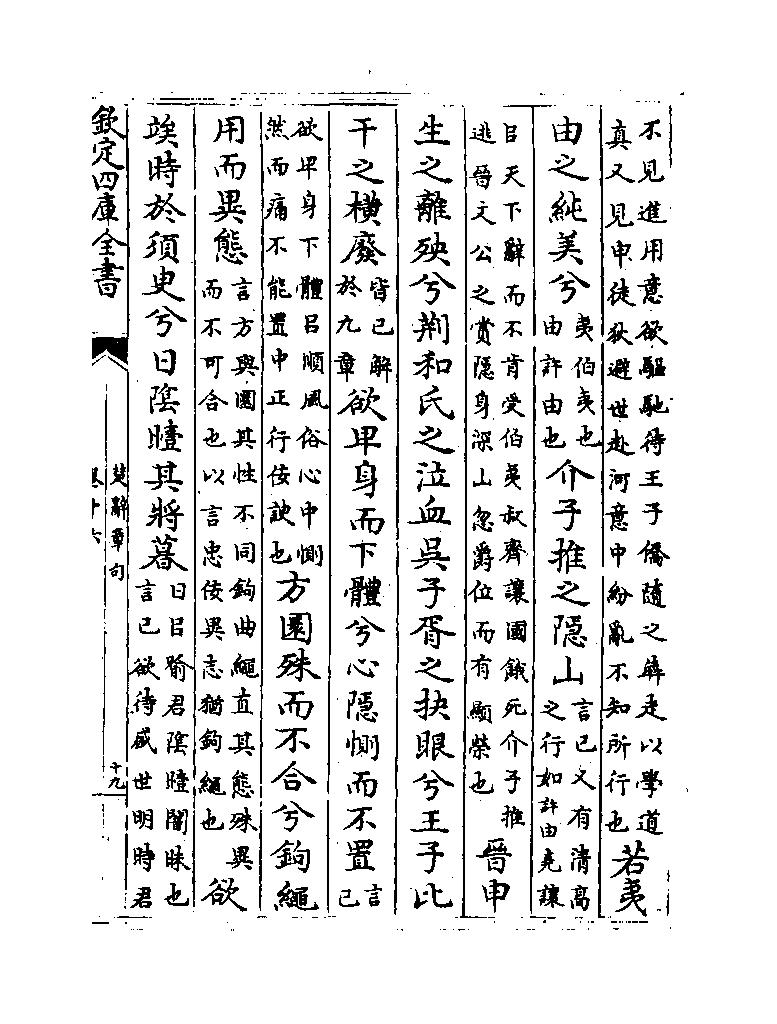 不見進用意欲驅馳待王子僑隨之犇走以學道
真又見申徒狄避世赴河意中紛亂不知所行也若夷
由之純美兮夷伯夷也由許由也介子推之隱山言己又有清高之行如許由堯讓
㠯天下辭而不肯受伯夷叔齊讓國餓死介子推逃晉文公之賞隱身深山忽爵位而有顯榮也晉申
生之離殃兮荆和氏之泣血吳子胥之抉眼兮王子比
干之橫廢皆已解於九章欲卑身而下體兮心隱惻而不置言己
欲卑身下體㠯順風俗心中惻然而痛不能置中正行佞諛也方圜殊而不合兮鉤繩
用而異態言方與圜其性不同鉤曲繩直其態殊異而不可合也以言忠佞異志猶鉤繩也欲
竢時於須臾兮日陰曀其將暮日㠯喻君陰曀闇昧也言己欲待盛世明時君
欽定四庫全書
楚辭章句
卷十六
十九